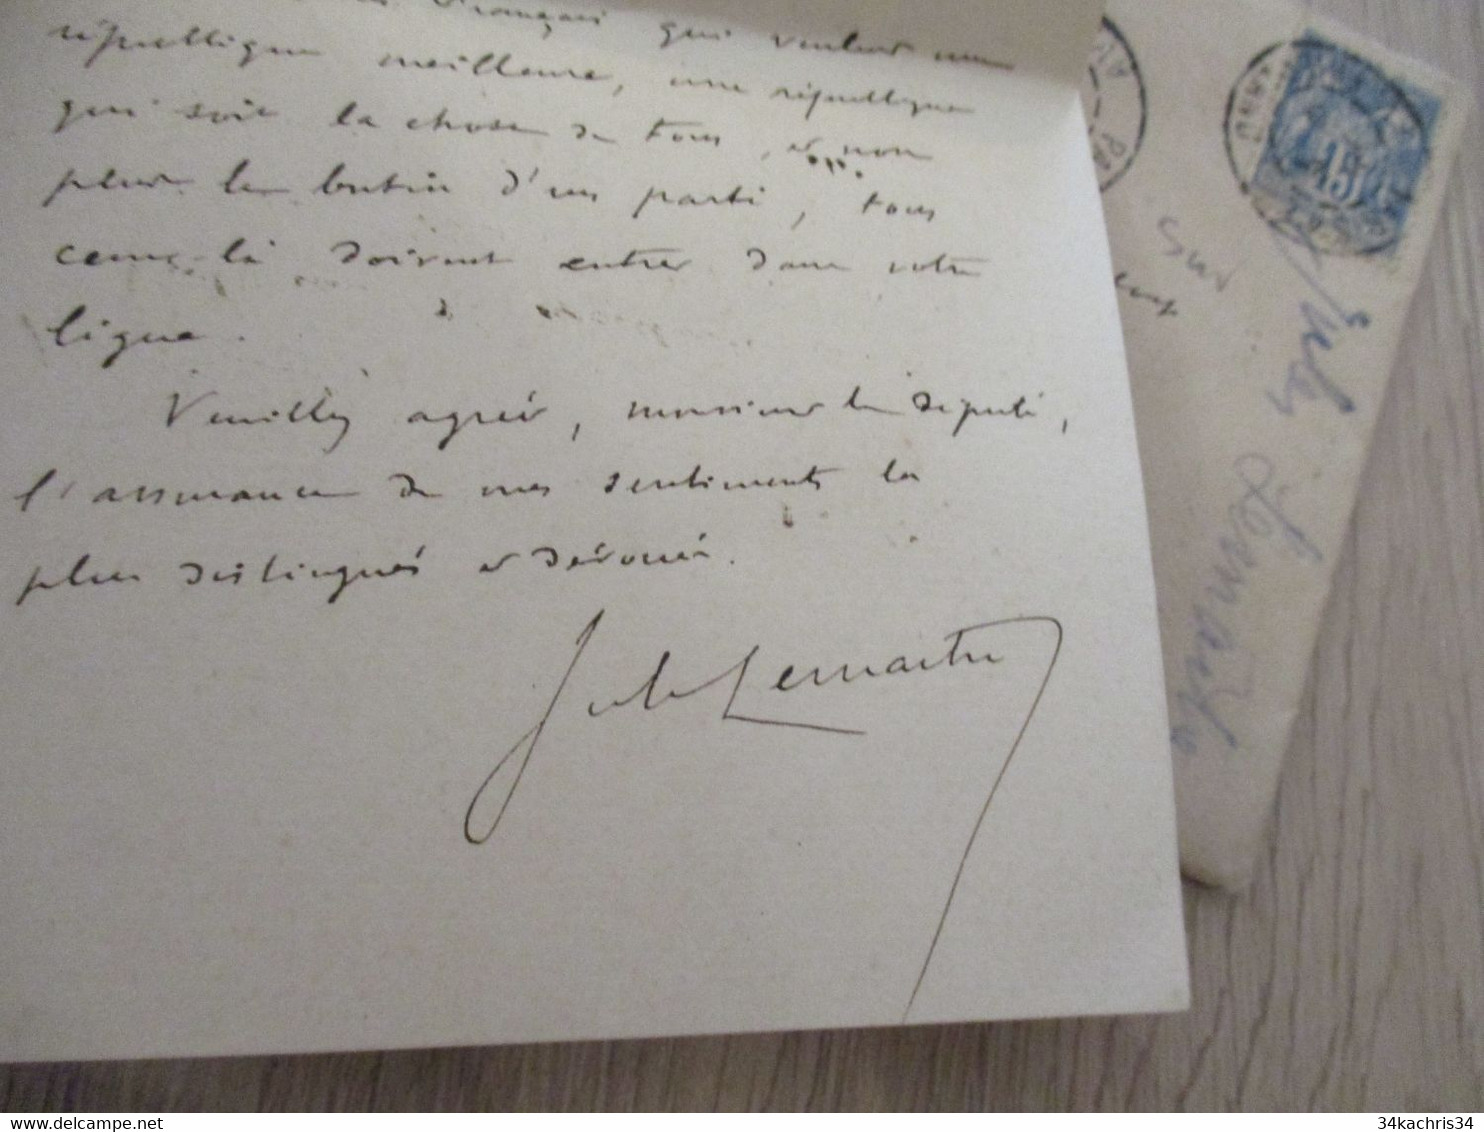 Français qui veulent une
république meilleure, une république
qui soit la chose de tous, et non
plus le butin d'un parti, tous
ceux-là doivent entrer dans votre
ligue.
Veuillez agréer, monsieur le député,
l'assurance de mes sentiments les
plus distingués et dévoués.
Jules Lemaitre
15
sur
Jules Lemaitre
delcampe.net
34kachris34